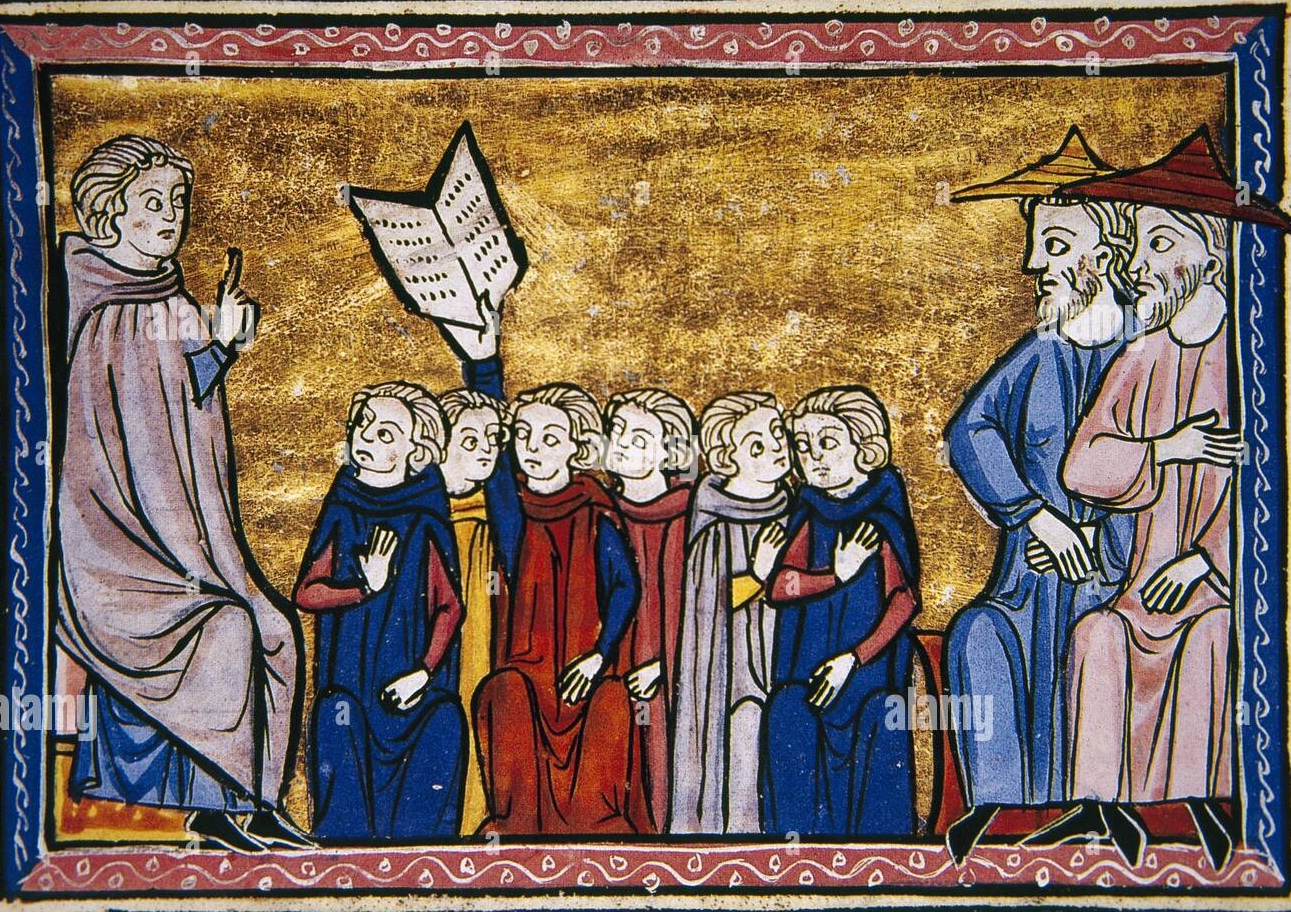 alamy
alamy
alamy
alamy